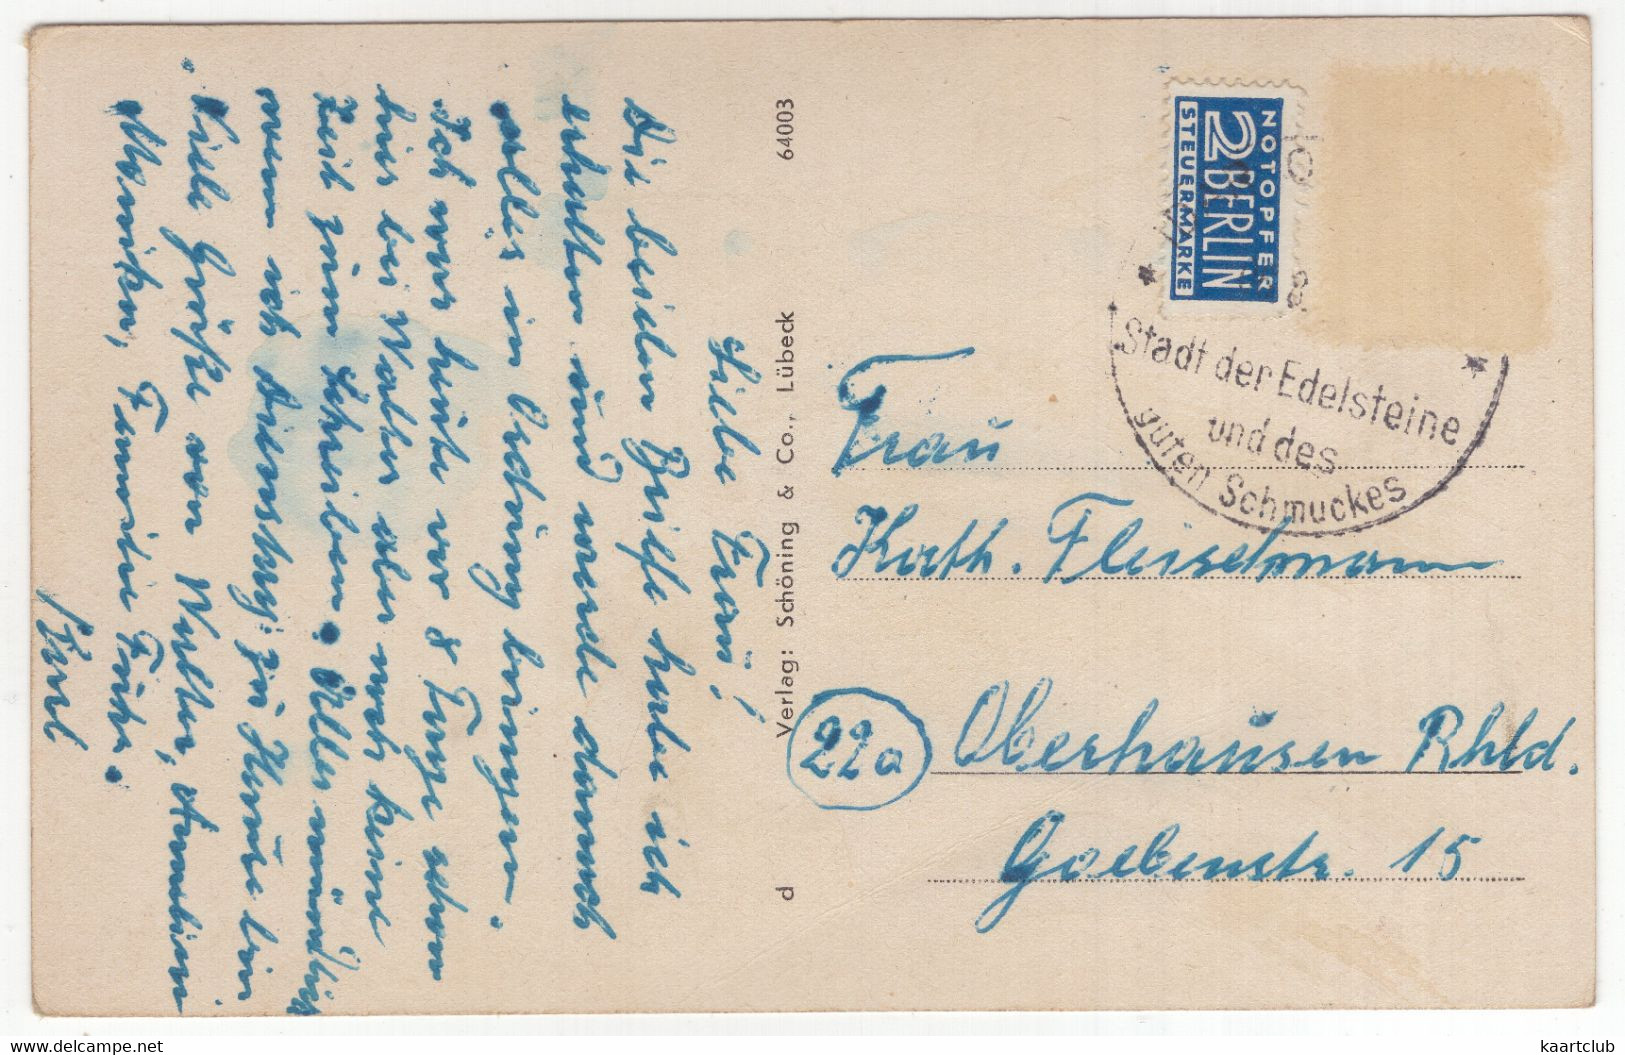 Liebe Frau!
Die beiden Briefe habe ich
erhalten und werde danach
alles in Ordnung bringen.
Ich war heute vor 8 Tage schon
hier bei Walter aber noch keine
Zeit zum Schreiben. Alles mündlich
wenn ich Dienstag zu Hause bin
Viele Grüße von Walter,
Monika, Familie
Karl
d Verlag: Schöning & Co., Lübeck 64003
NOTOPFER
2 BERLIN
STEUERMARKE
Stadt der Edelsteine
und des
guten Schmuckes
Frau
Kath. Fleischmann
22a Oberhausen Rhld.
Goebenstr. 15
www.delcampe.net
kaartclub